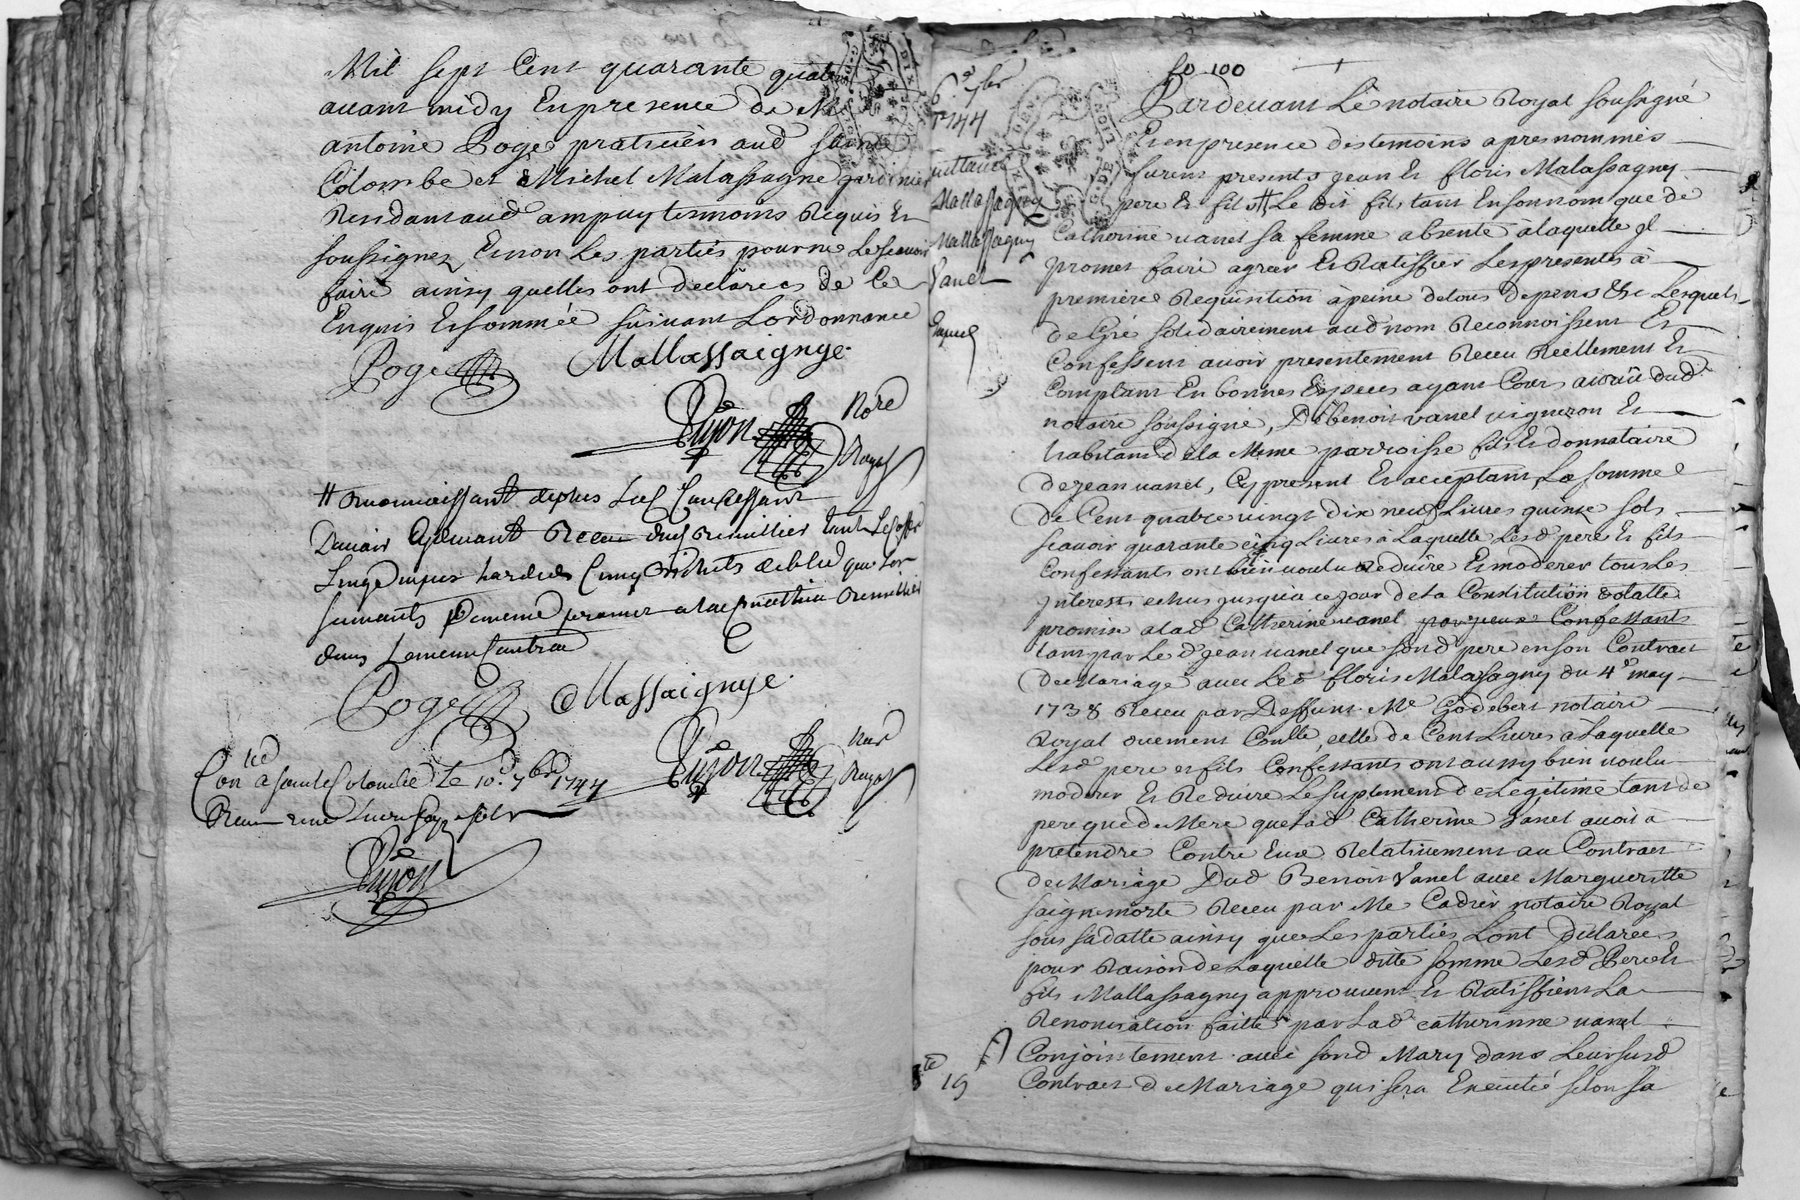 Mil sept Cent quarante quatre
avant midy En presence de Me
antoine Poge praticien aud sainte
Colombe et Michel Malassagne jardinier
Residant aud ampuy temoins Requis Et
soussignez Et non Les parties pour ne Le scavoir
faire ainsy quelles ont declarées de Ce
Enquis Et sommée suivant Lordonnance
Poge Mallassaignye
Dujon Nore
Royal
# 
Davoir
Linge
suivants
dans Le meme Contrat
Poge Massaignye
Dujon Nore
Royal
Con lé a sainte Colombe Le 10e 7bre 1744
Dujon
fo 100
6e 7bre
1744
quittance
Mallassagny
Mallassagny
Vanel
Pardevant Le notaire Royal soussigné
Et en presence des temoins apres nommés
furent presents jean Et floris Malassagny
pere Et fils # Le dit fils tant En son nom que de
Catherine vanel sa femme absente à laquelle jl
promet faire agreer Et Ratiffier Les presentes à
premiere Requisition à peine de tous depens &c Lesquels
de Gré solidairement aud nom Reconnoissent Et
Confessent avoir presentement Receu Réellement Et
Comptant En bonnes Especes ayant Cours au vû dud
notaire soussigné, De benoit vanel vigneron Et
habitant de la Meme parroisse fils Et donnataire
de jean vanel, Cy present Et acceptant La somme
de Cent quatre vingt dix neuf Livres quinze sols
scavoir quarante cinq Livres à Laquelle Lesd pere Et fils
Confessants ont bien voulu Reduire Et moderer tous Les
jnterests echus jusqua ce jour de La Constitution dotalle
promise a lad Catherine vanel par yceux Confessants
tant par Le d jean vanel que sond pere en son Contract
de Mariage avec Led floris Malassagny du 4e may
1738 Receu par Deffunt Me Godebert notaire
Royal duement Conllé, celle de Cent Livres à Laquelle
Lesd pere et fils Confessants ont aussy bien voulu
moderer Et Reduire Le suplement de Legitime tant de
pere que de Mere que lad Catherine Vanel avoit à
pretendre Contre Eux Relativement au Contract
de Mariage Dud Benoit Vanel avec Margueritte
saignemorte Receu par Me Cadier notaire Royal
sous sa datte ainsy que Les parties Lont declarées
pour Raison de Laquelle ditte somme Lesd Pere Et
fils Mallassagny approuvent Et Ratiffient La
Renonciation faitte par Lad catherinne vanel
Conjointement avec sond Mary dans Leur susd
19 Contract de Mariage qui sera Executé selon sa